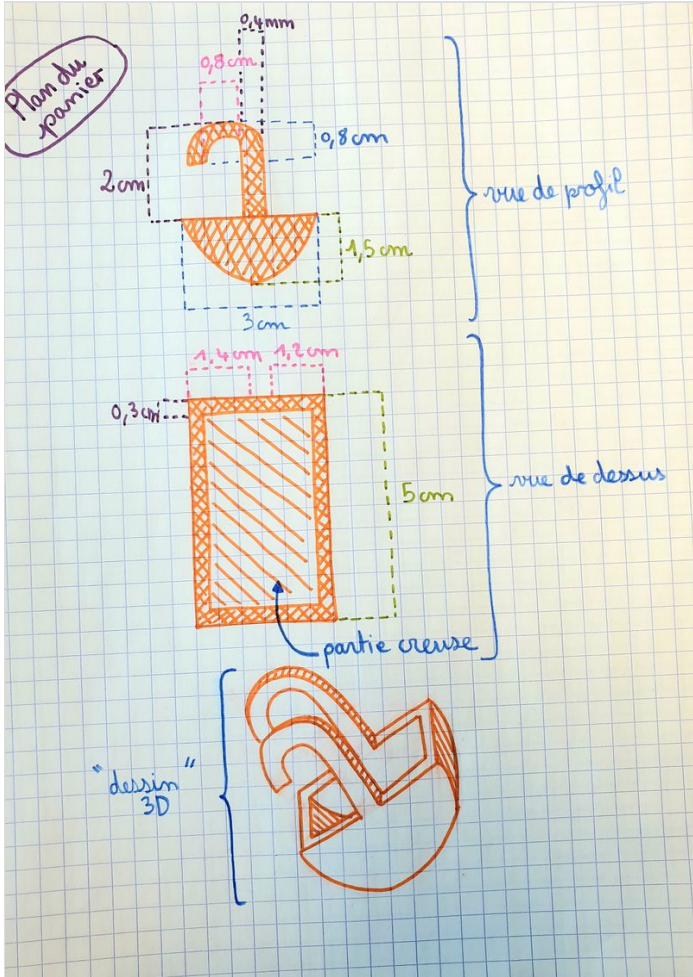 Plan du
panier
0,4mm
0,8cm
0,8cm
2cm
1,5cm
3cm
vue de profil
1,4cm
1,2cm
0,3cm
5cm
vue de dessus
partie creuse
"dessin"
3D